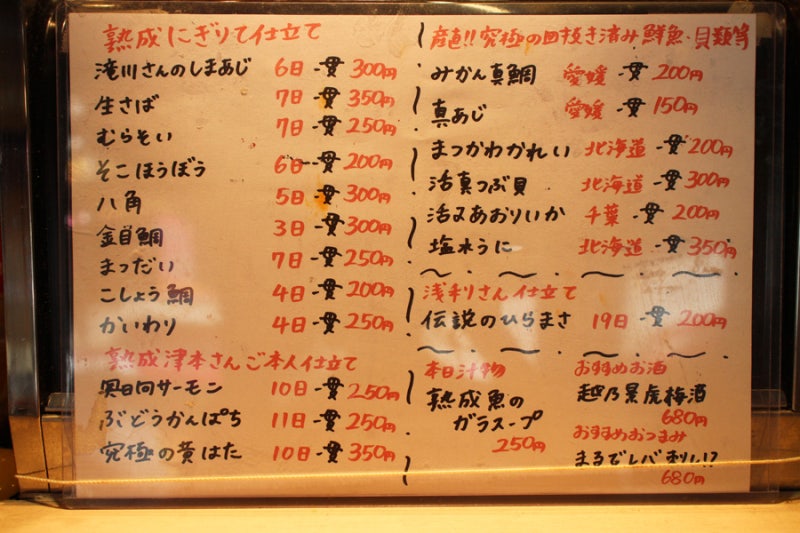 熟成にぎりて仕立て
滝川さんのしまあじ 6日 一貫 300円
生さば 7日 一貫 350円
むらそい 7日 一貫 250円
そこほうぼう 6日 一貫 200円
八角 5日 一貫 300円
金目鯛 3日 一貫 300円
まつだい 7日 一貫 250円
こしょう鯛 4日 一貫 200円
かいわり 4日 一貫 250円
熟成津本さんご本人仕立て
奥日向サーモン 10日 一貫 250円
ぶどうかんぱち 11日 一貫 250円
究極の黄はた 10日 一貫 350円
産直!!究極の血抜き済み鮮魚・貝類等
みかん真鯛 愛媛 一貫 200円
真あじ 愛媛 一貫 150円
まつかわかれい 北海道 一貫 200円
活真つぶ貝 北海道 一貫 300円
活〆あおりいか 千葉 一貫 200円
塩水うに 北海道 一貫 350円
浅利さん仕立て
伝説のひらまさ 19日 一貫 200円
本日汁物
熟成魚の
ガラスープ
250円
おすすめお酒
越乃景虎梅酒
680円
おすすめおつまみ
まるでレバ刺し!?
680円